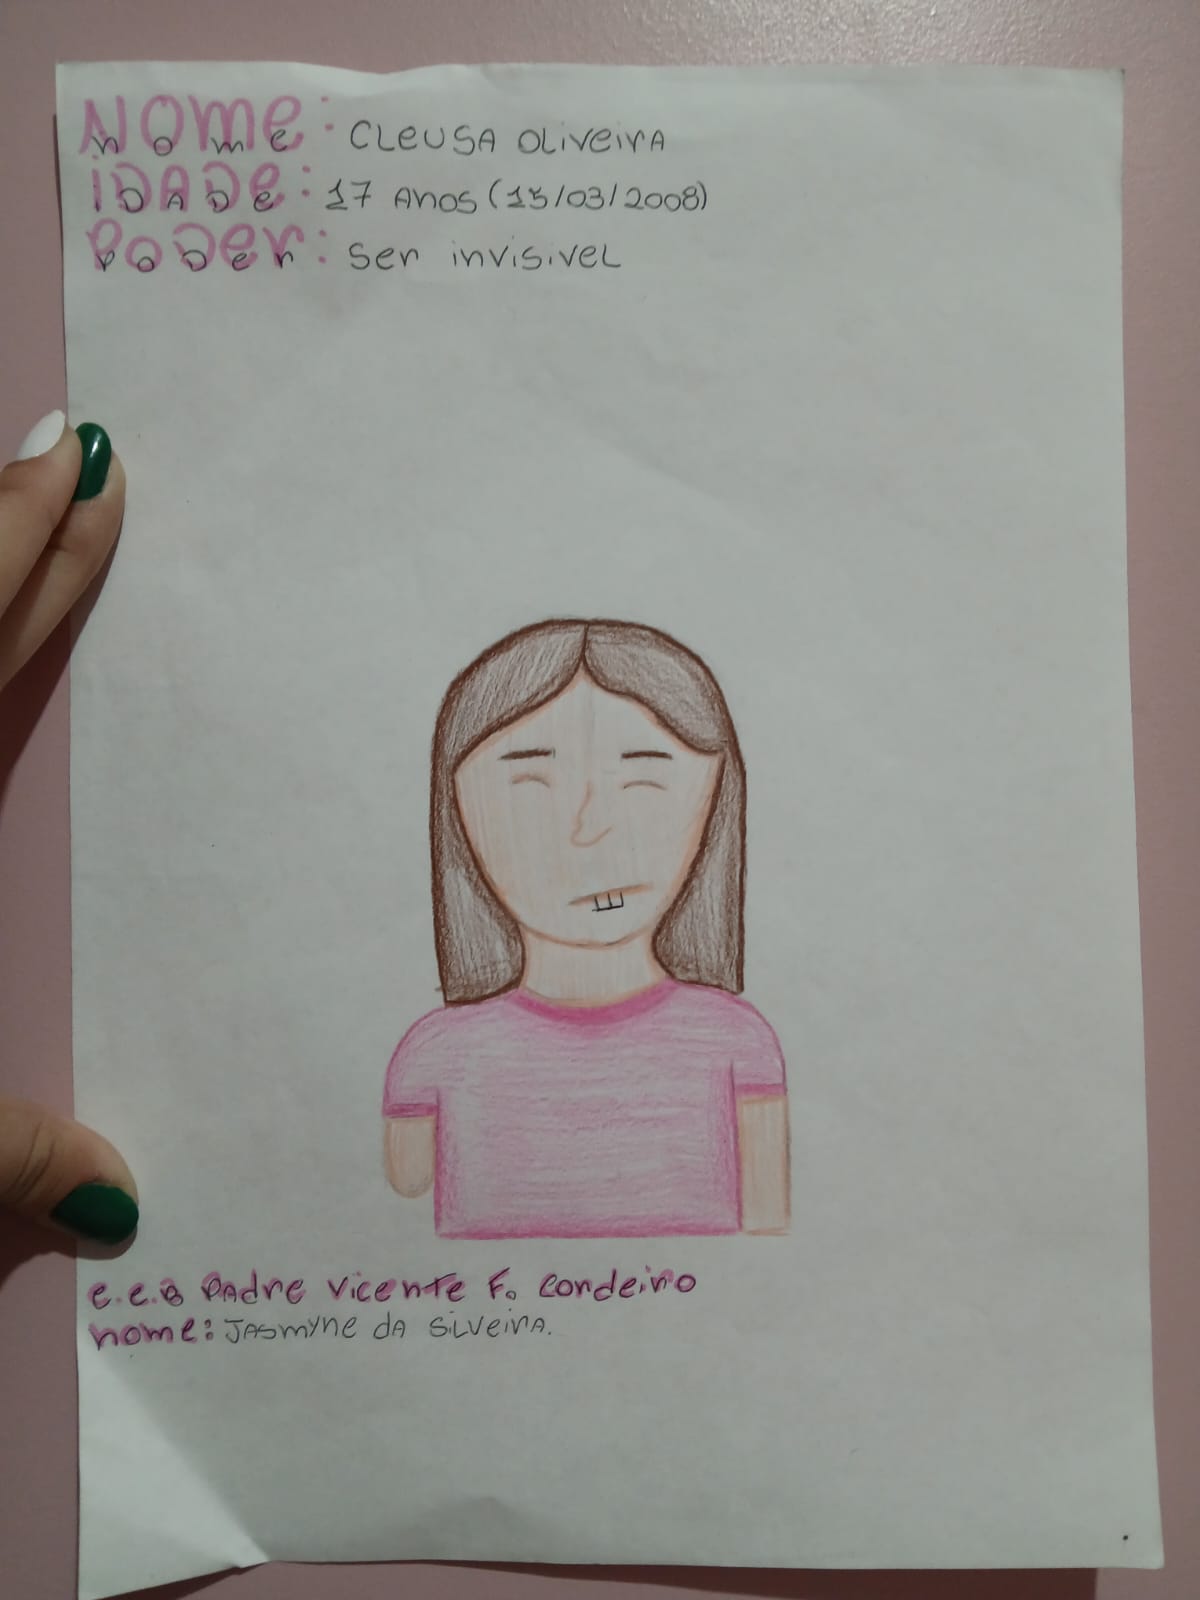 Nome: CLEUSA OLIVEIRA
IDADE: 17 ANOS (15/03/2008)
PODER: Ser invisivel
e.e.B Padre Vicente F. Cordeiro
nome: JASMYNE DA SILVEIRA.